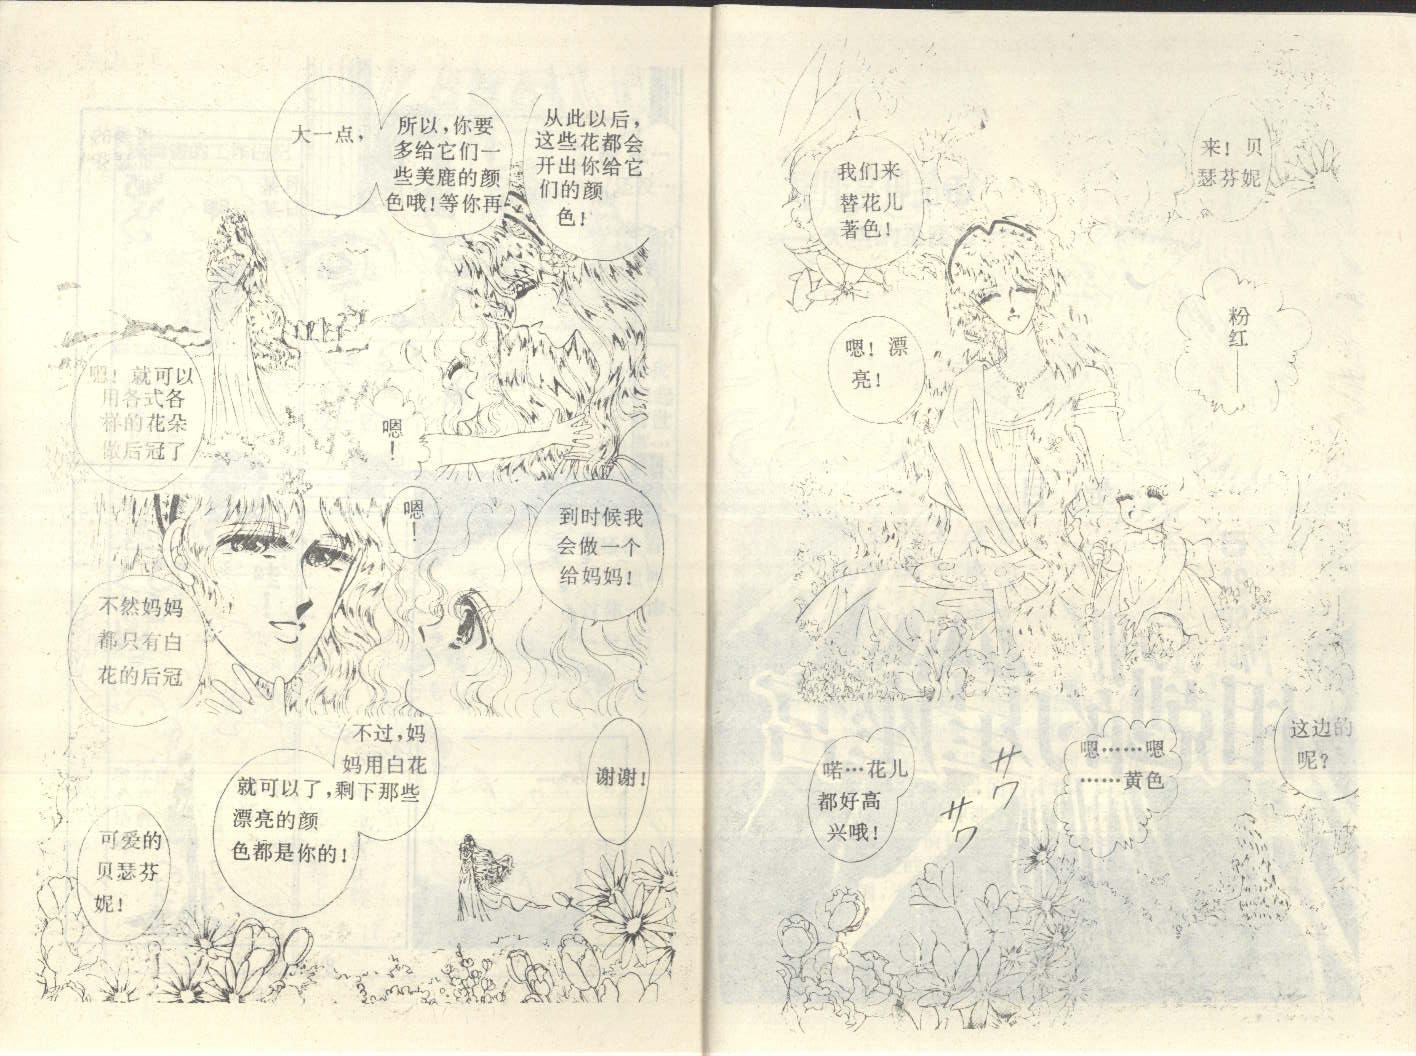 来！贝
瑟芬妮
我们来
替花儿
著色！
粉
红
｜
嗯！漂
亮！
这边的
呢？
嗯……嗯
……黄色
喏…花儿
都好高
兴哦！
ザワ
ザワ
从此以后，
这些花都会
开出你给它
们的颜
色！
所以，你要
多给它们一
些美鹿的颜
色哦！等你再
大一点，
嗯！
嗯！就可以
用各式各
样的花朵
做后冠了
到时候我
会做一个
给妈妈！
嗯！
不然妈妈
都只有白
花的后冠
不过，妈
妈用白花
就可以了，剩下那些
漂亮的颜
色都是你的！
谢谢！
可爱的
贝瑟芬
妮！